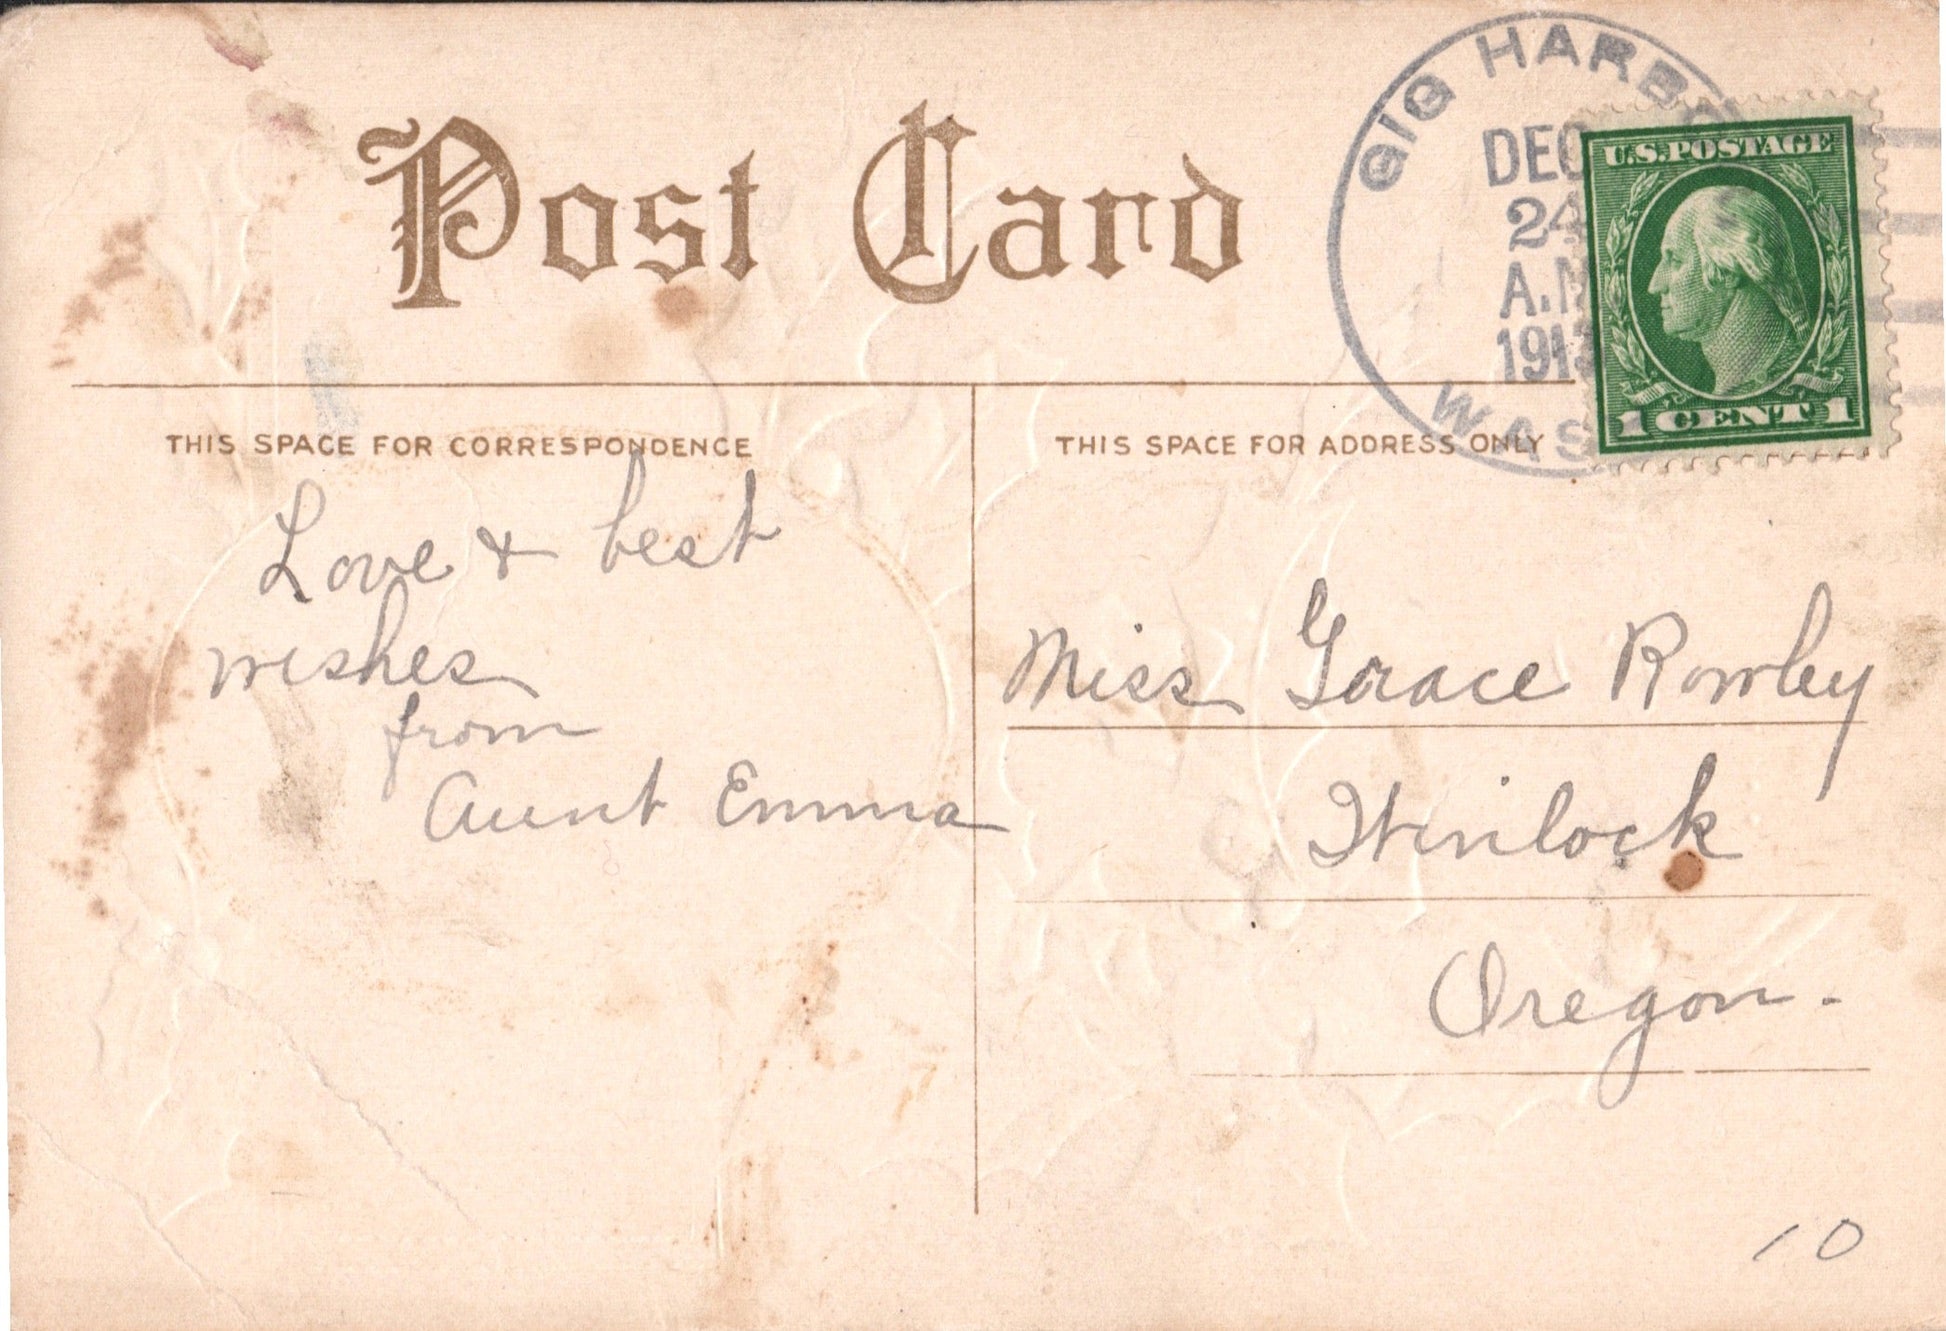 Post Card
GIG HARBO
DEC
24
A.M
1913
WAS
U.S. POSTAGE
1 CENT 1
THIS SPACE FOR CORRESPONDENCE
THIS SPACE FOR ADDRESS ONLY
Love & best
wishes
from
Aunt Emma
Miss Grace Rowley
Oregon.
10